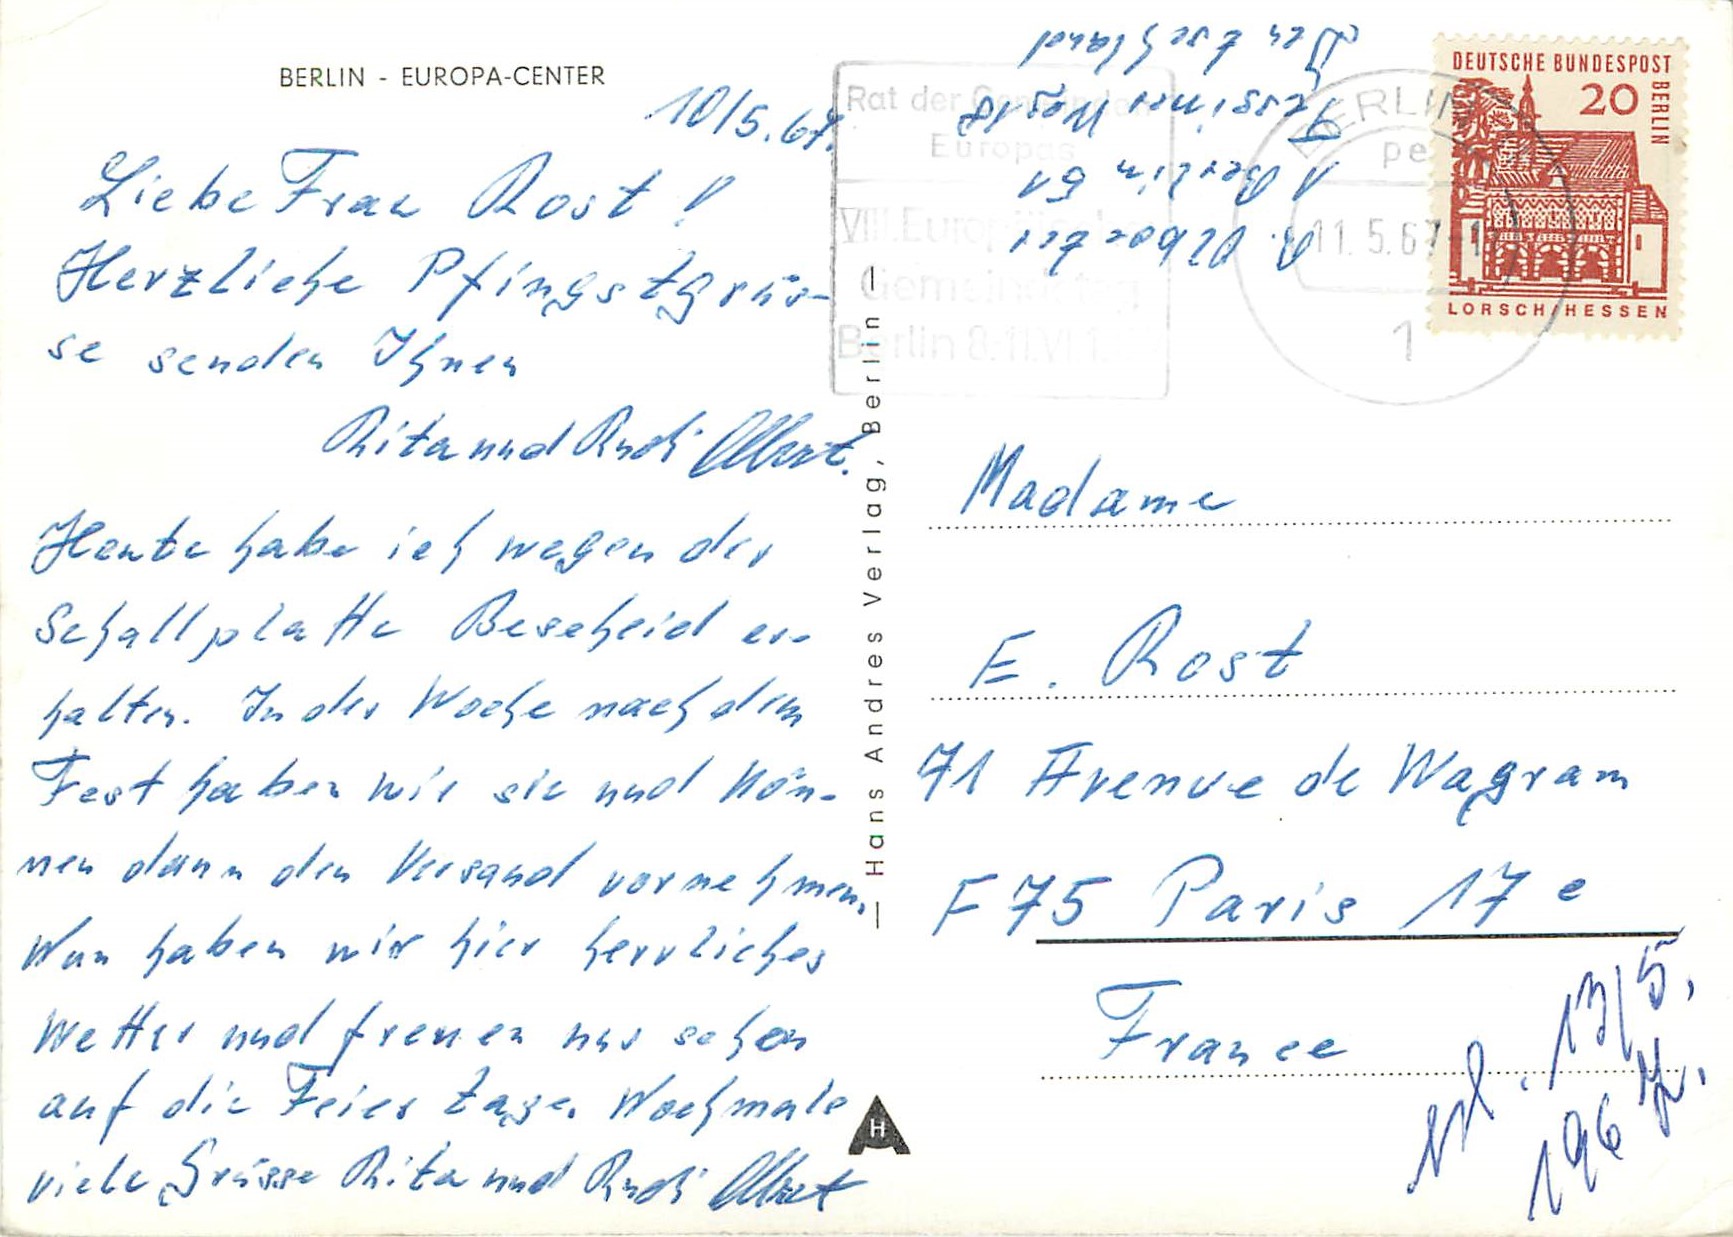 BERLIN - EUROPA-CENTER
10/5.67.
Liebe Frau Rost!
Herzliche Pfingstgrüs-
se senden Ihnen
Rita und Rudi
Heute habe ich wegen der
Schallplatte Bescheid er-
halten. In der Woche nach dem
Fest haben wir sie und kön-
nen dann den Versand vornehmen.
Nun haben wir hier herrliches
Wetter und freuen uns schon
auf die Feiertage. Nochmals
viele Grüsse Rita und Rudi
— Hans Andres Verlag, Berlin —
H
R. Olbertz
1 Berlin 51
Weg 18
Deutschland
Rat der Gemeinden
Europas
VIII. Europäischer
Gemeindetag
Berlin 8.-11.VI.
BERLIN
11.5.67
1
DEUTSCHE BUNDESPOST
BERLIN
20
LORSCH/HESSEN
Madame
E. Rost
71 Avenue de Wagram
F 75 Paris 17e
France
13/5.
1967.